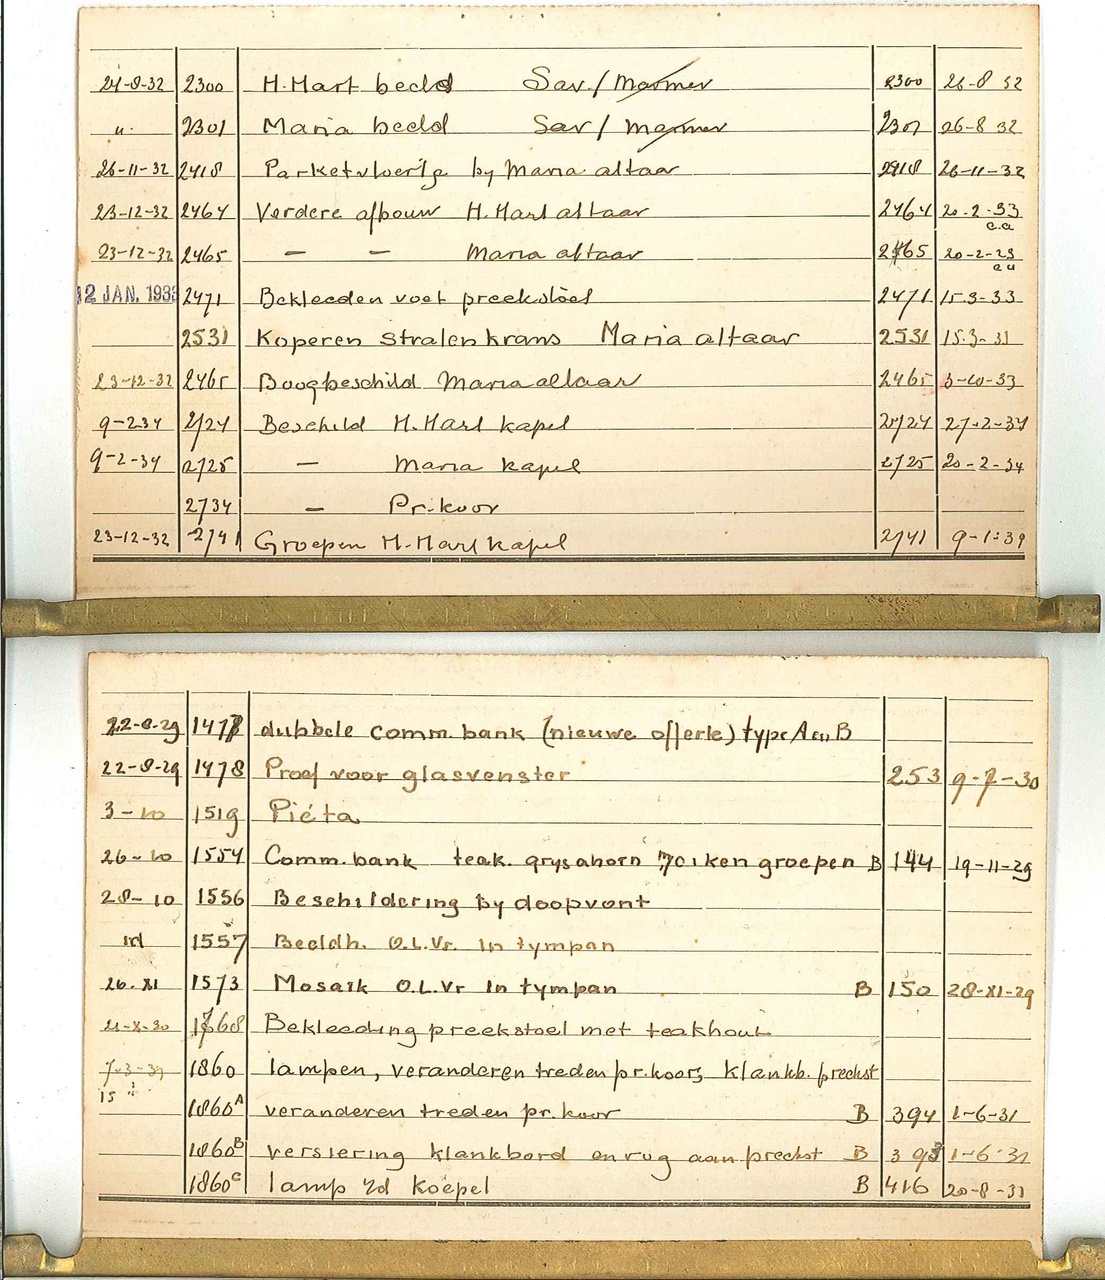 24-8-32 2300 H.Hart beeld Sav./ Marmer 2300 26-8 32
". 2301 Maria beeld Sav/ Marmer 2301 26-8 32
26-11-32 2418 Parketvloertje by Maria altaar 2418 26-11-32
23-12-32 2464 Verdere afbouw H.Hart altaar 2464 20-2-33
e.a
23-12-32 2465 — — Maria altaar 2465 20-2-33
12 JAN. 1933 2471 Bekleeden voet preekstoel 2471 15-3-33
2531 Koperen stralenkrans Maria altaar 2531 15-3-33
23-12-32 2465 Boogbeschild Maria altaar 2465 3-10-33
9-2 34 2724 Beschild H.Hart kapel 2724 27-2-34
9-2-34 2725 — Maria kapel 2725 20-2-34
2734 — Pr.koor
23-12-32 2741 Groepen H.Hart kapel 2741
22-8-29 1477 dubbele comm.bank (nieuwe offerte) type A en B
22-8-29 1478 Proef voor glasvenster 253 9-7-30
3-10 1519 Piéta
26-10 1554 Comm.bank teak. grysahorn eiken groepen B 144 19-11-29
28-10 1556 Beschildering by doopvont
id 1557 Beeldh. O.L.Vr. in tympan
26.XI 1573 Mosaik O.L.Vr in tympan B 150 28-XI-29
21-X-30 1768 Bekleeding preekstoel met teakhout
1860 lampen, veranderen treden pr.koor, klankb. preekst
15
1860A veranderen treden pr. koor B 394 1-6-31
1860B versiering klankbord en rug aan preekst B 395 1-6-31
1860C lamp i/d koepel B 416 20-8-31